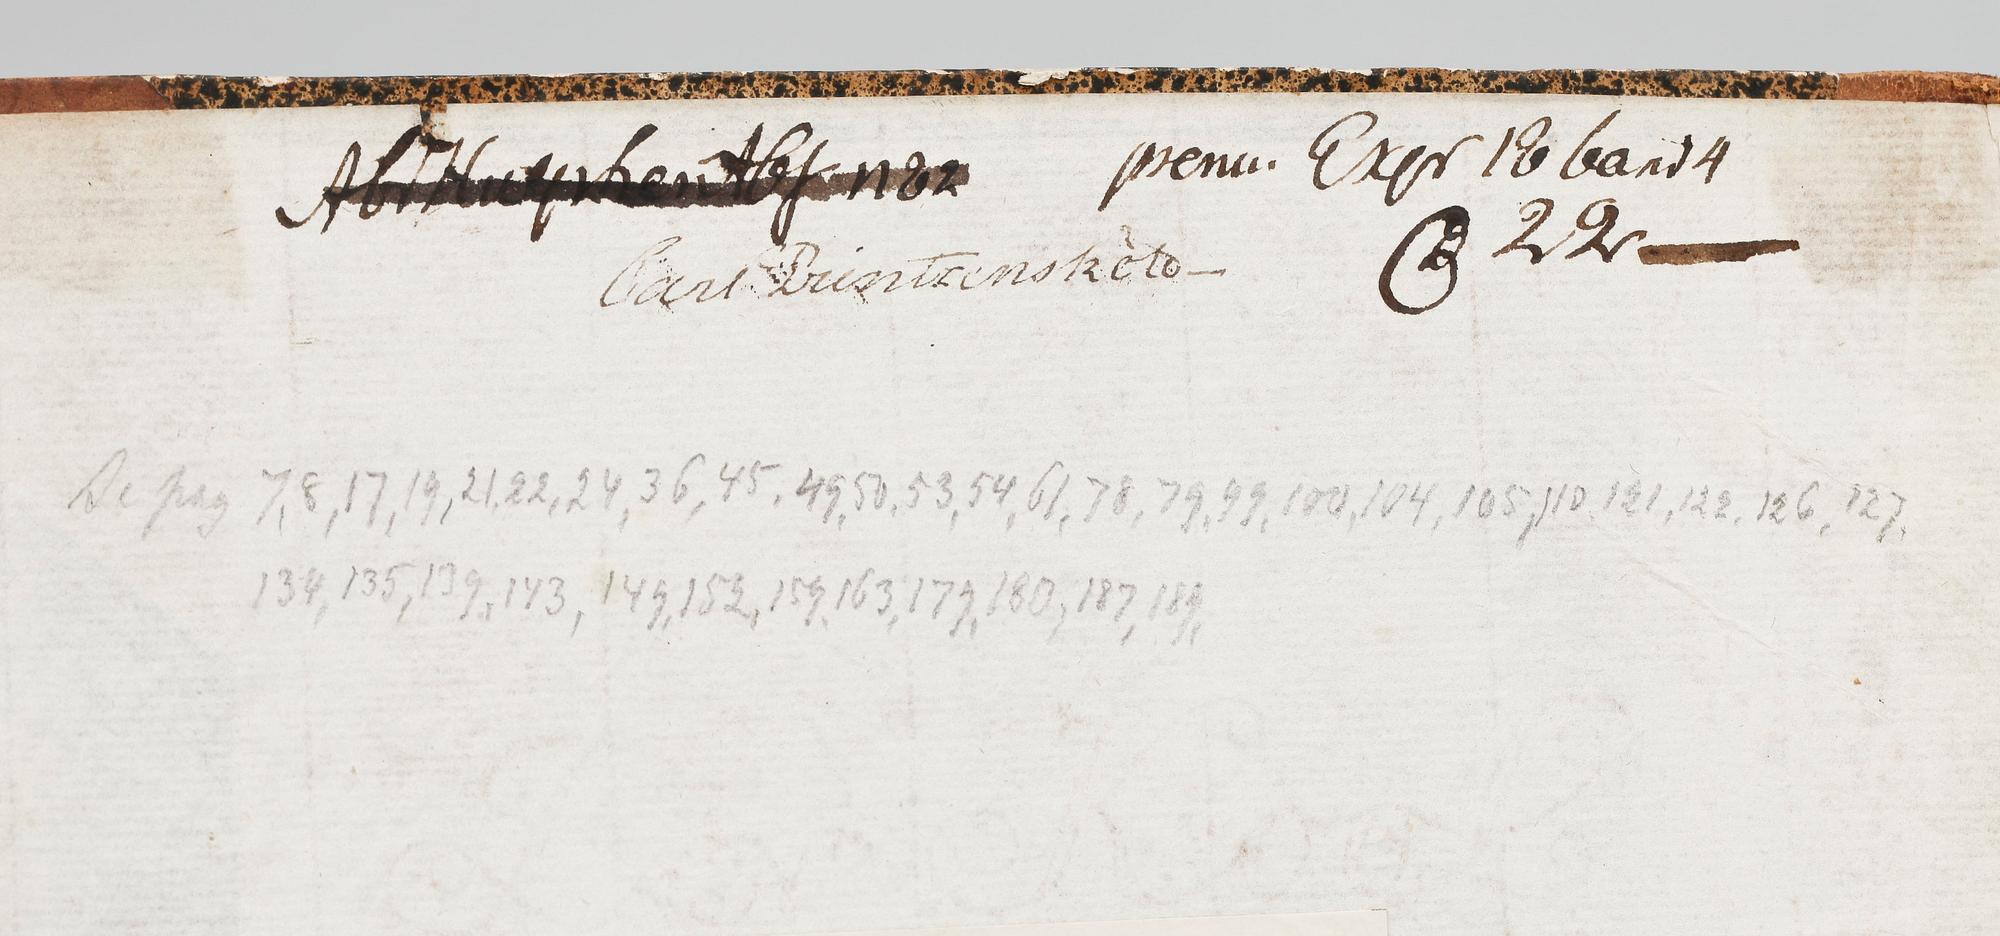 prenu. Expr 18 band 4
22
Carl Printzensköld
Se pag 7, 8, 17, 19, 21, 22, 24, 36, 45, 49, 50, 53, 54, 61, 78, 79, 99, 100, 104, 105, 110, 121, 122, 126, 127,
134, 135, 139, 143, 149, 152, 159, 163, 179, 180, 187, 189,